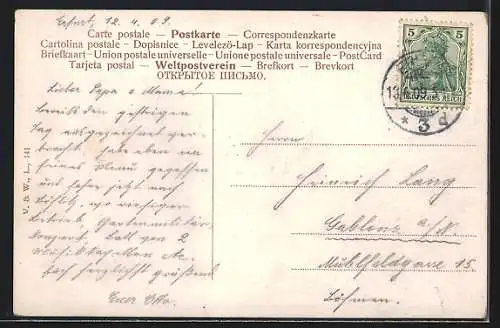 Erfurt, 12. 4. 09.
Carte postale — Postkarte — Correspondenzkarte
Cartolina postale — Dopisnice — Levelező-Lap — Karta korrespondencyjna
Briefkaart - Union postale universelle - Unione postale universale - PostCard
Tarjeta postal — Weltpostverein — Brefkort — Brevkort
ОТКРЫТОЕ ПИСЬМО.
5 5
DEUTSCHES REICH
13.4.09
* 3 d
Lieber Papa u. Mama!
bereits den gestrigen
Tag ausgezeichnet ver-
bracht, habe eben ein
feines Menü gegessen
und
Betrieb, Gartenmilitär-
konzert, Ball von 2
herzlichst grüßend
Euer Otto.
V. S. W., L., 141
Herrn
Heinrich Lang
Gablonz a/N.
Mühlfeldgasse 15.
Böhmen.